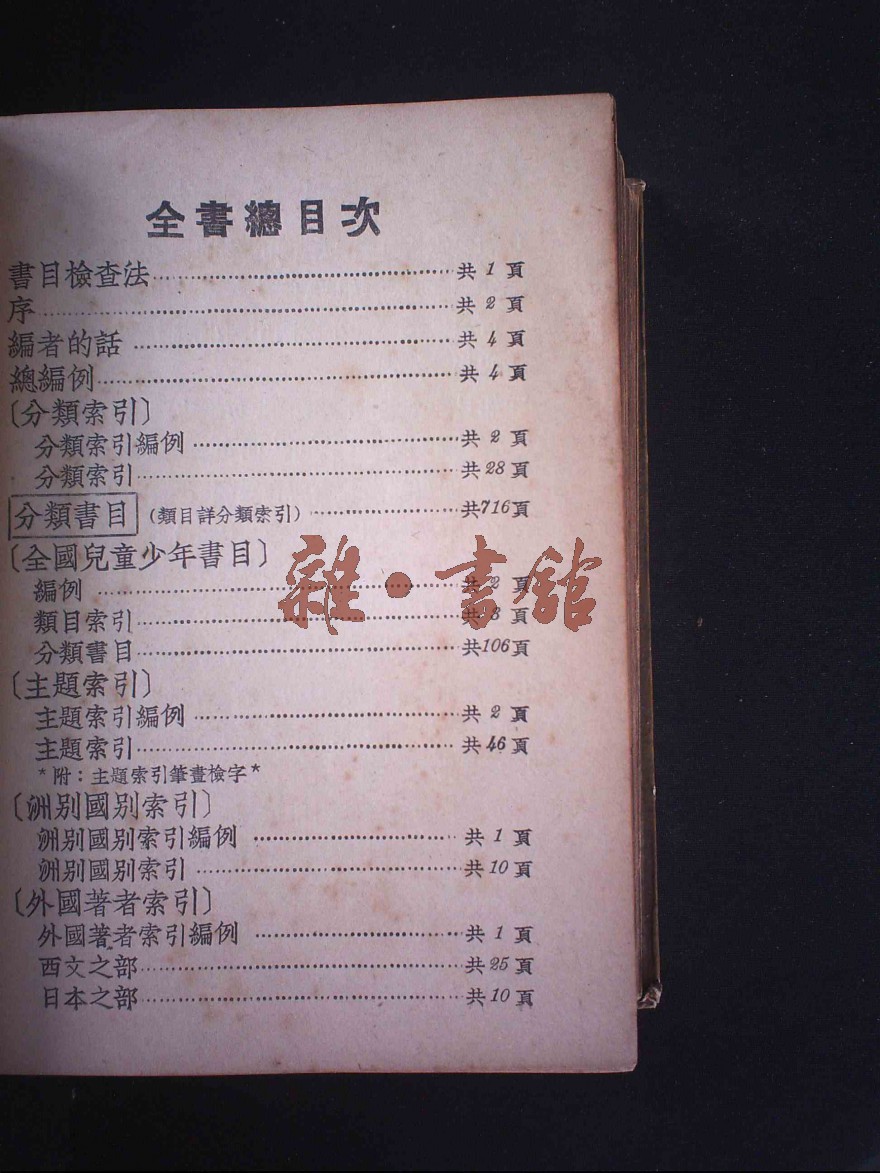 全書總目次
書目檢查法………………共 1 頁
序………………共 2 頁
編者的話………………共 4 頁
總編例………………共 4 頁
〔分類索引〕
分類索引編例………………共 2 頁
分類索引………………共28頁
分類書目（類目詳分類索引）………………共716頁
〔全國兒童少年書目〕
編例………………共 2 頁
雜·書舘
類目索引………………共 3 頁
分類書目………………共106頁
〔主題索引〕
主題索引編例………………共 2 頁
主題索引………………共46頁
*附：主題索引筆畫檢字*
〔洲别國别索引〕
洲别國别索引編例………………共 1 頁
洲别國别索引………………共10頁
〔外國著者索引〕
外國著者索引編例………………共 1 頁
西文之部………………共25頁
日本之部………………共10頁